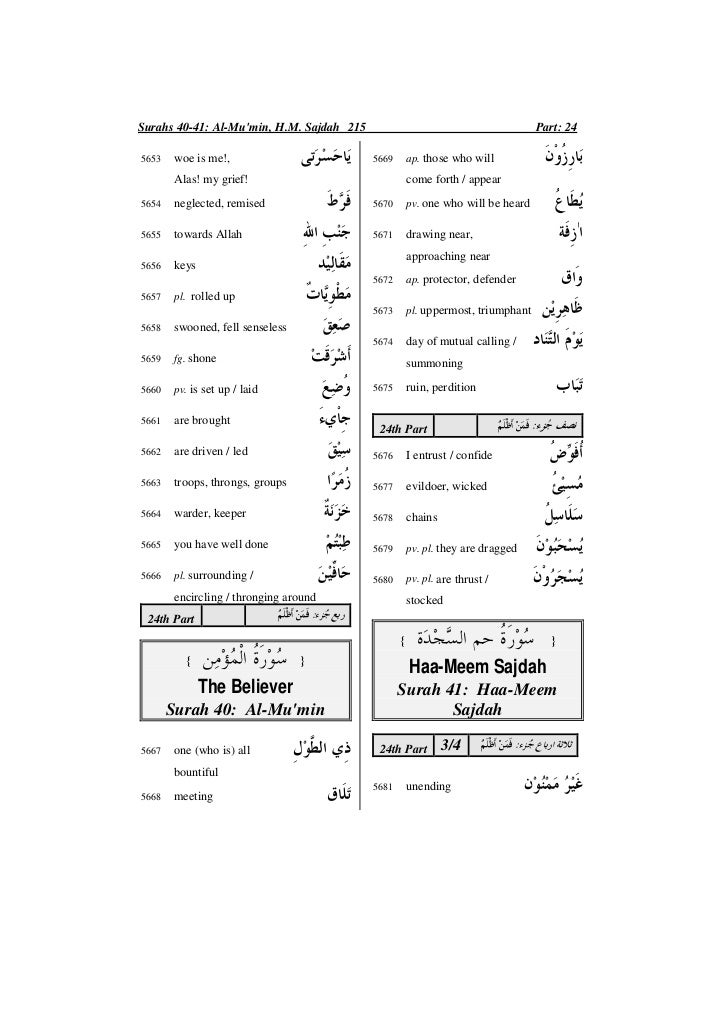 Surahs 40-41: Al-Mu'min, H.M. Sajdah 215 Part: 24
5653 woe is me!, يَاحَسْرَتٰى
Alas! my grief!
5654 neglected, remised فَرَّطَ
5655 towards Allah جَنْبِ اللهِ
5656 keys مَقَالِيْد
5657 pl. rolled up مَطْوِيَّاتٌ
5658 swooned, fell senseless صَعِقَ
5659 fg. shone أَشْرَقَتْ
5660 pv. is set up / laid وُضِعَ
5661 are brought جِاْيءَ
5662 are driven / led سِيْقَ
5663 troops, throngs, groups زُمَرًا
5664 warder, keeper خَزَنَةٌ
5665 you have well done طِبْتُمْ
5666 pl. surrounding / حَافِّيْنَ
encircling / thronging around
24th Part ربع جُزء: فَمَنْ أَظْلَمُ
{ سُوْرَةُ الْمُؤْمِنِ }
The Believer
Surah 40: Al-Mu'min
5667 one (who is) all ذِي الطَّوْلِ
bountiful
5668 meeting تَلَاقِ
5669 ap. those who will بَارِزُوْنَ
come forth / appear
5670 pv. one who will be heard يُطَاعُ
5671 drawing near, اٰزِفَة
approaching near
5672 ap. protector, defender وَاق
5673 pl. uppermost, triumphant ظَاهِرِيْنَ
5674 day of mutual calling / يَوْمَ التَّنَاد
summoning
5675 ruin, perdition تَبَاب
24th Part نصف جُزء: فَمَنْ أَظْلَمُ
5676 I entrust / confide أُفَوِّضُ
5677 evildoer, wicked مُسِيْئُ
5678 chains سَلَاسِلُ
5679 pv. pl. they are dragged يُسْحَبُوْنَ
5680 pv. pl. are thrust / يُسْجَرُوْنَ
stocked
{ سُوْرَةُ حم السَّجْدَة }
Haa-Meem Sajdah
Surah 41: Haa-Meem
Sajdah
24th Part 3/4 ثلاثة ارباع جُزء: فَمَنْ أَظْلَمُ
5681 unending غَيْرُ مَمْنُوْن